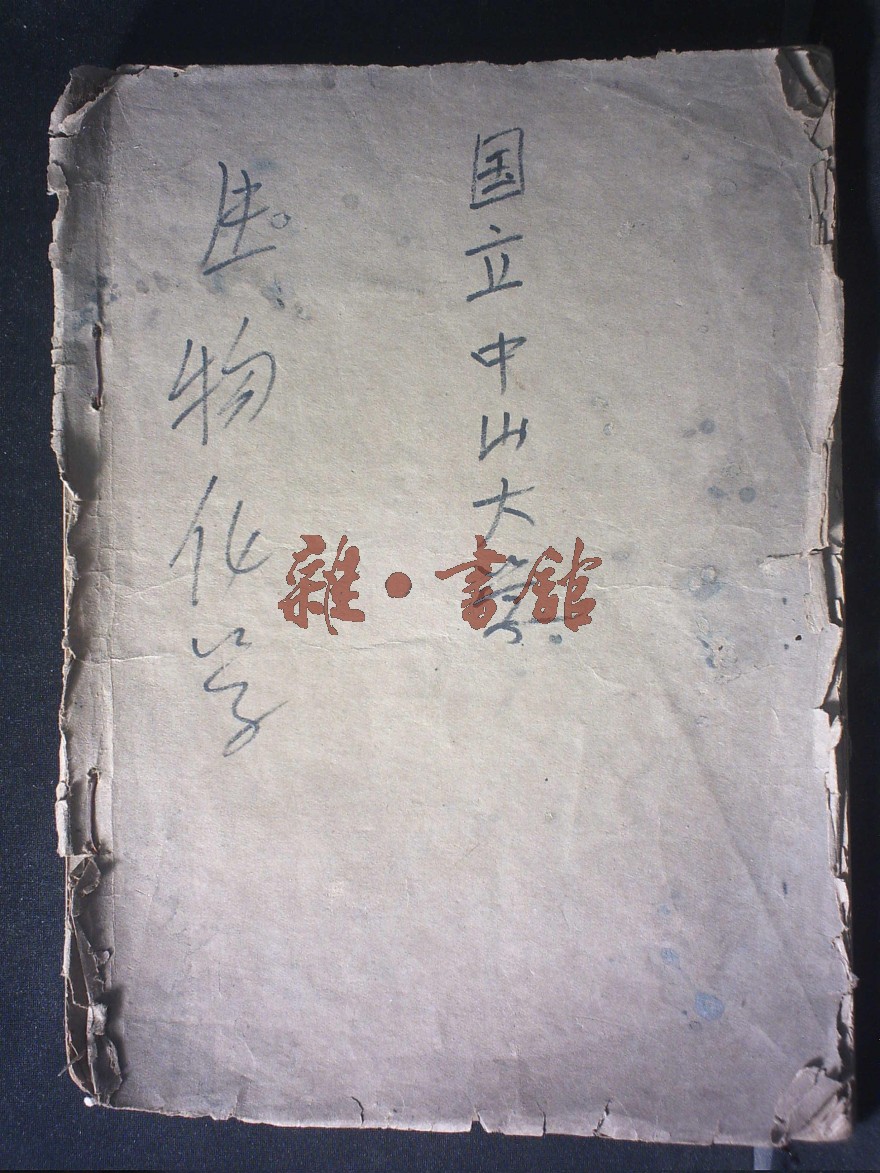 国立中山大学
生物化学
雜●書舘